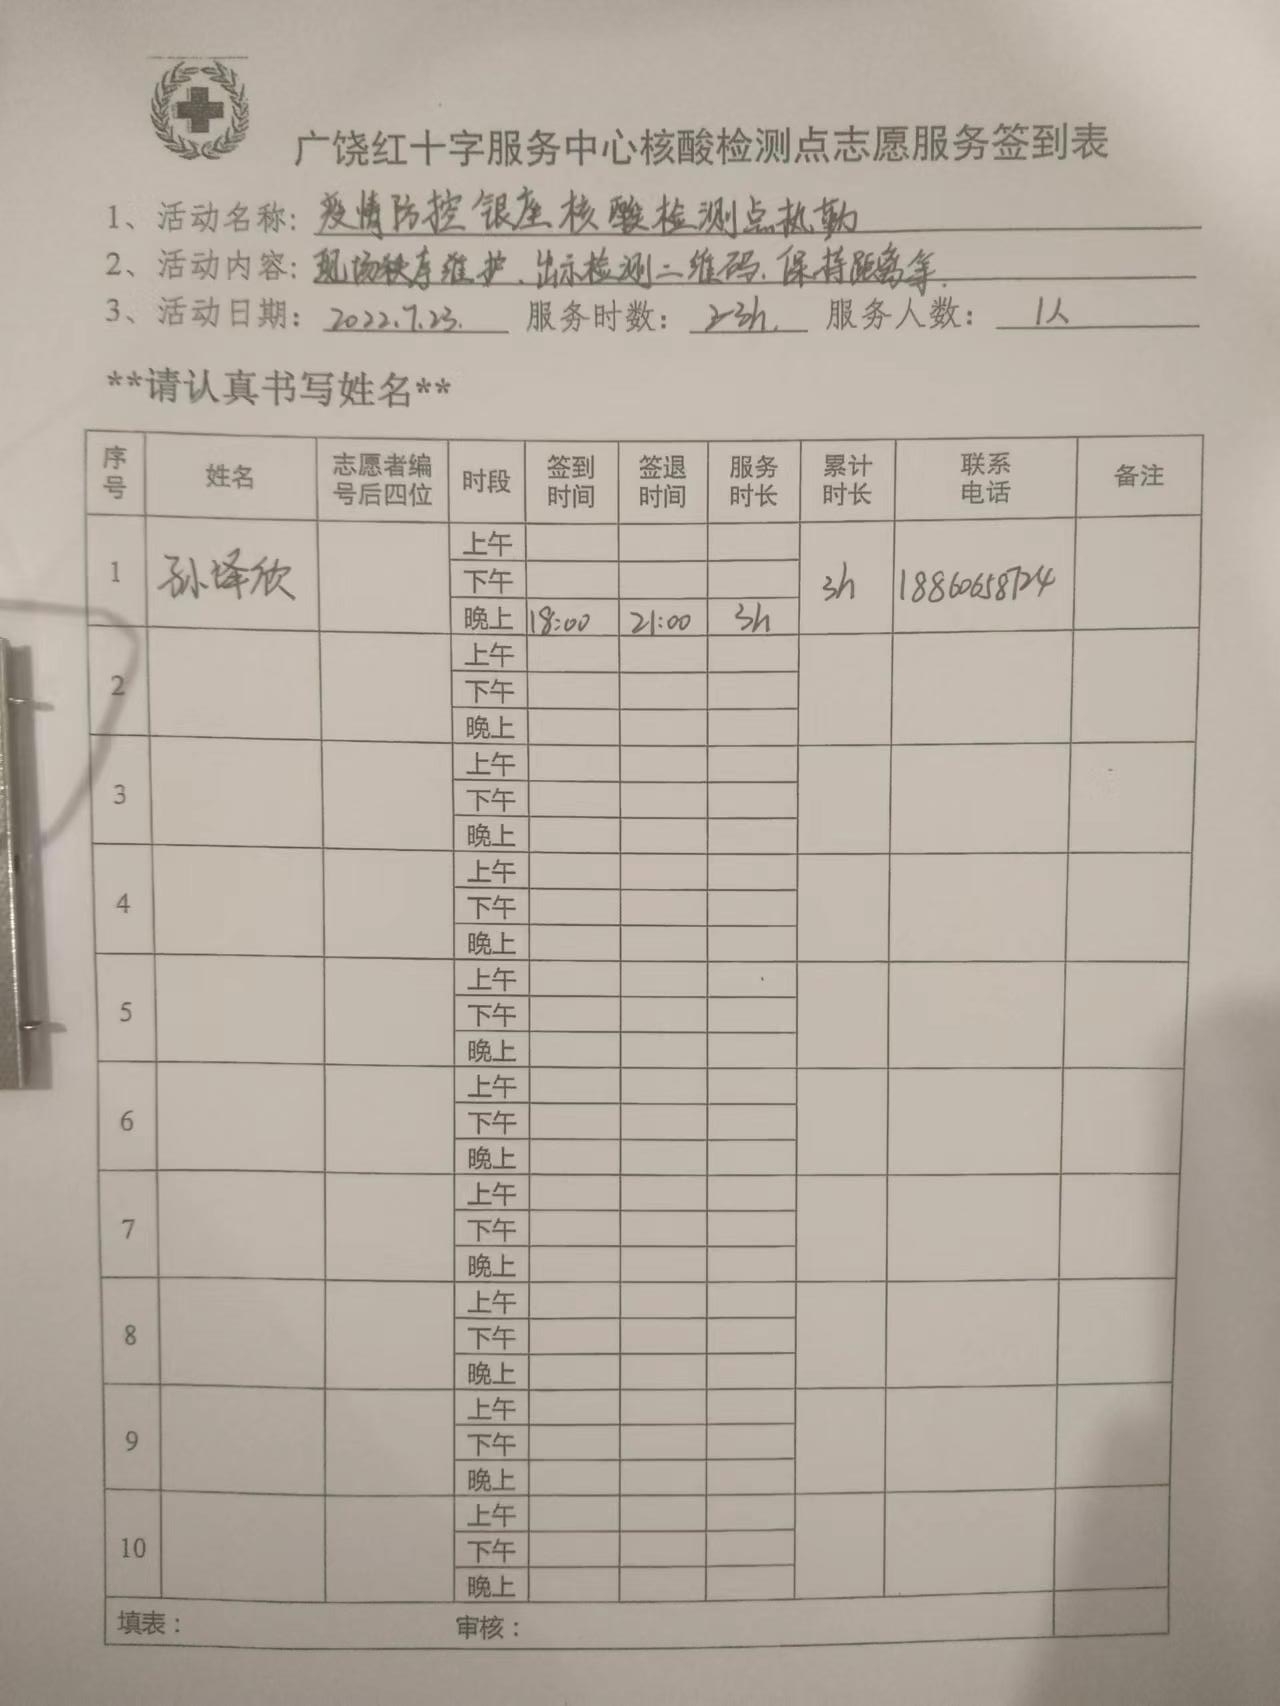 广饶红十字服务中心核酸检测点志愿服务签到表
1、活动名称：疫情防控银座核酸检测点执勤
2、活动内容：现场秩序维护、出示检测二维码、保持距离等.
3、活动日期：2022.7.23. 服务时数：2-3h. 服务人数：1人
**请认真书写姓名**
序号 姓名 志愿者编号后四位 时段 签到时间 签退时间 服务时长 累计时长 联系电话 备注
上午
1 孙择欣 下午 3h 18860658724
晚上 18:00 21:00 3h
上午
2 下午
晚上
上午
3 下午
晚上
上午
4 下午
晚上
上午
5 下午
晚上
上午
6 下午
晚上
上午
7 下午
晚上
上午
8 下午
晚上
上午
9 下午
晚上
上午
10 下午
晚上
填表： 审核：